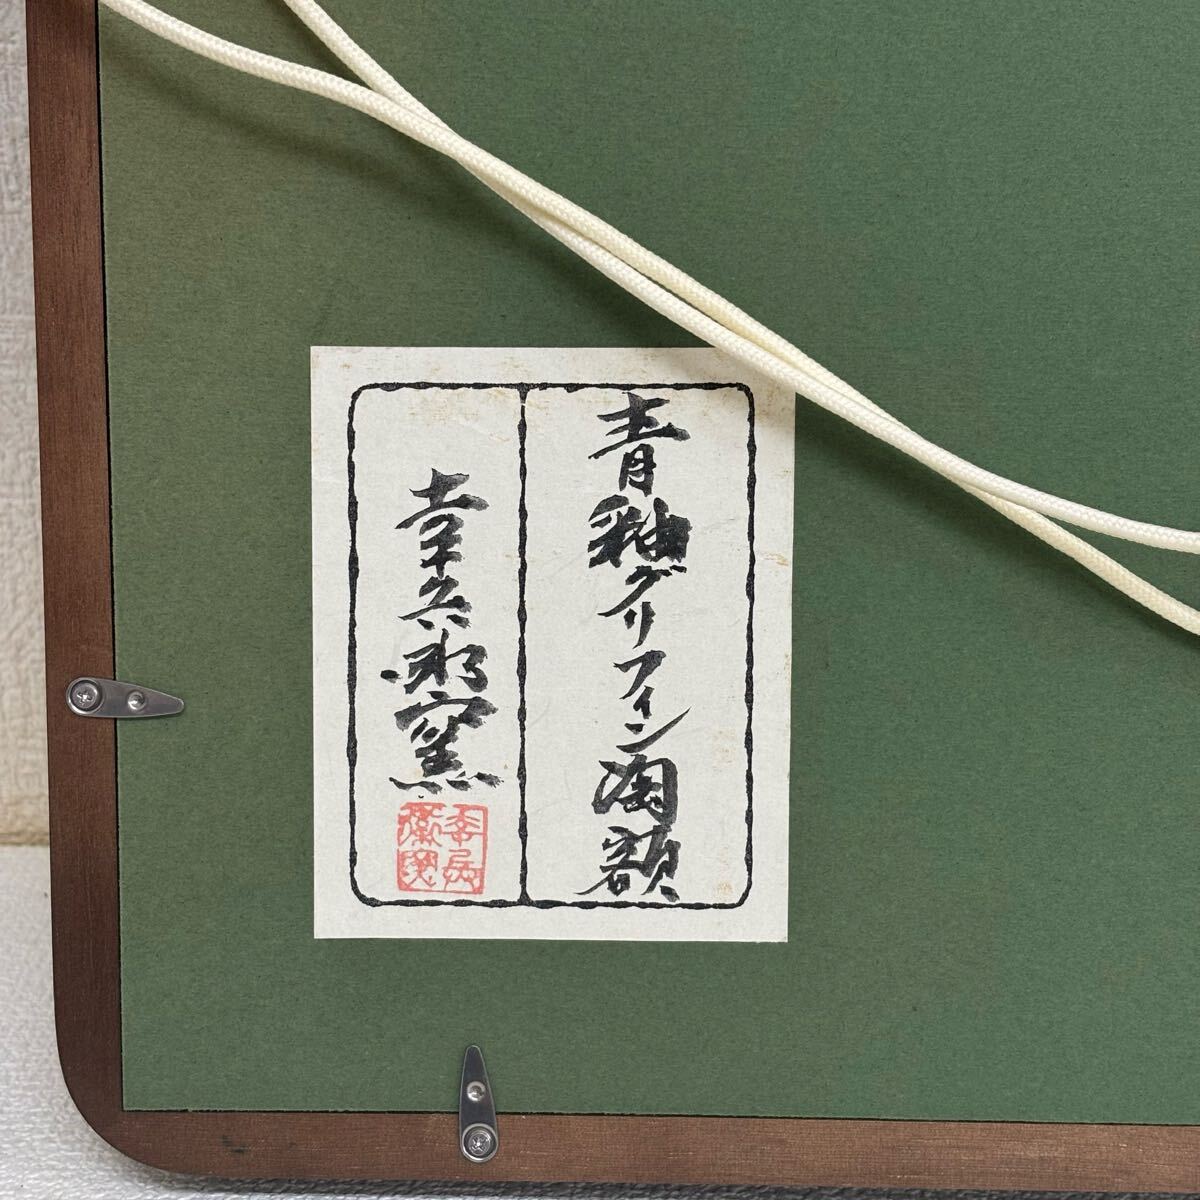 青釉グリフィン陶額
幸兵衛窯
幸兵衛窯